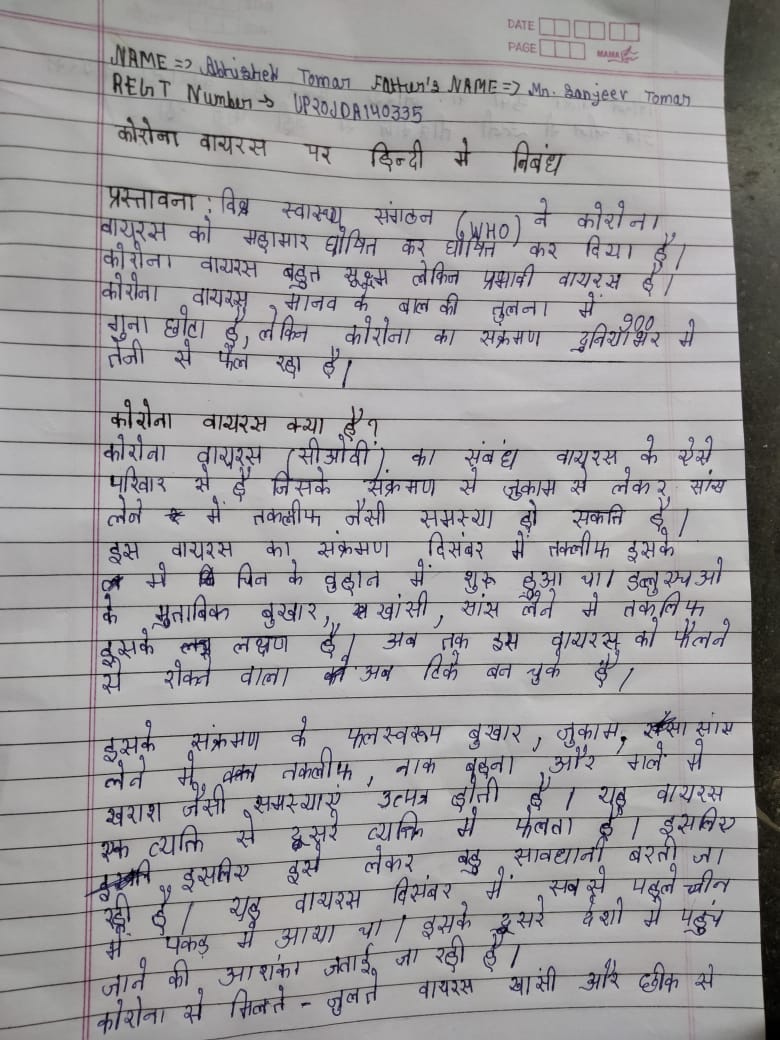 DATE
PAGE
MAMA
NAME => Abhishek Tomar Father's NAME => Mr. Sanjeev Tomar
REGT Number → UP20JDA140335
कोरोना वायरस पर हिन्दी में निबंध
प्रस्तावना : विश्व स्वास्थ्य संगठन (WHO) ने कोरोना
वायरस को महामार घोषित कर घोषित कर दिया है।
कोरोना वायरस बहुत सूक्ष्म लेकिन प्रभावी वायरस है।
कोरोना वायरस मानव के बाल की तुलना में
900
गुना छोटा है, लेकिन कोरोना का संक्रमण दुनियाभर मे
तेजी से फैल रहा है।
कोरोना वायरस क्या है?
कोरोना वायरस (सीओवी) का संबंध वायरस के ऐसे
परिवार से है जिसके संक्रमण से जुकाम से लेकर सांस
लेने में तकलीफ जैसी समस्या हो सकति है।
इस वायरस का संक्रमण दिसंबर में तक्लीफ इसके
मे चिन के वुहान में शुरू हुआ था। डब्लूएचओ
के मुताबिक बुखार, खांसी, सांस लेने मे तकलिफ
इसके लक्षण है। अब तक इस वायरस को फैलने
से रोकने वाला अब टिके बन चुके है।
इसके संक्रमण के फलस्वरूप बुखार, जुकाम, सांस
लेने में तकलीफ, नाक बहना और गले मे
खराश जैसी समस्याएं उत्पन्न होती है। यह वायरस
एक व्यक्ति से दूसरे व्यक्ति मे फैलता है। इसलिए
इसलिए इसे लेकर बहु सावधानी बरती जा
रही है। यह वायरस दिसंबर में सबसे पहले चीन
में पकड़ मे आया था। इसके दूसरे देशो मे पहुंच
जाने की आशंका जताई जा रही है।
कोरोना से मिलते - जुलते वायरस खांसी और छीक से